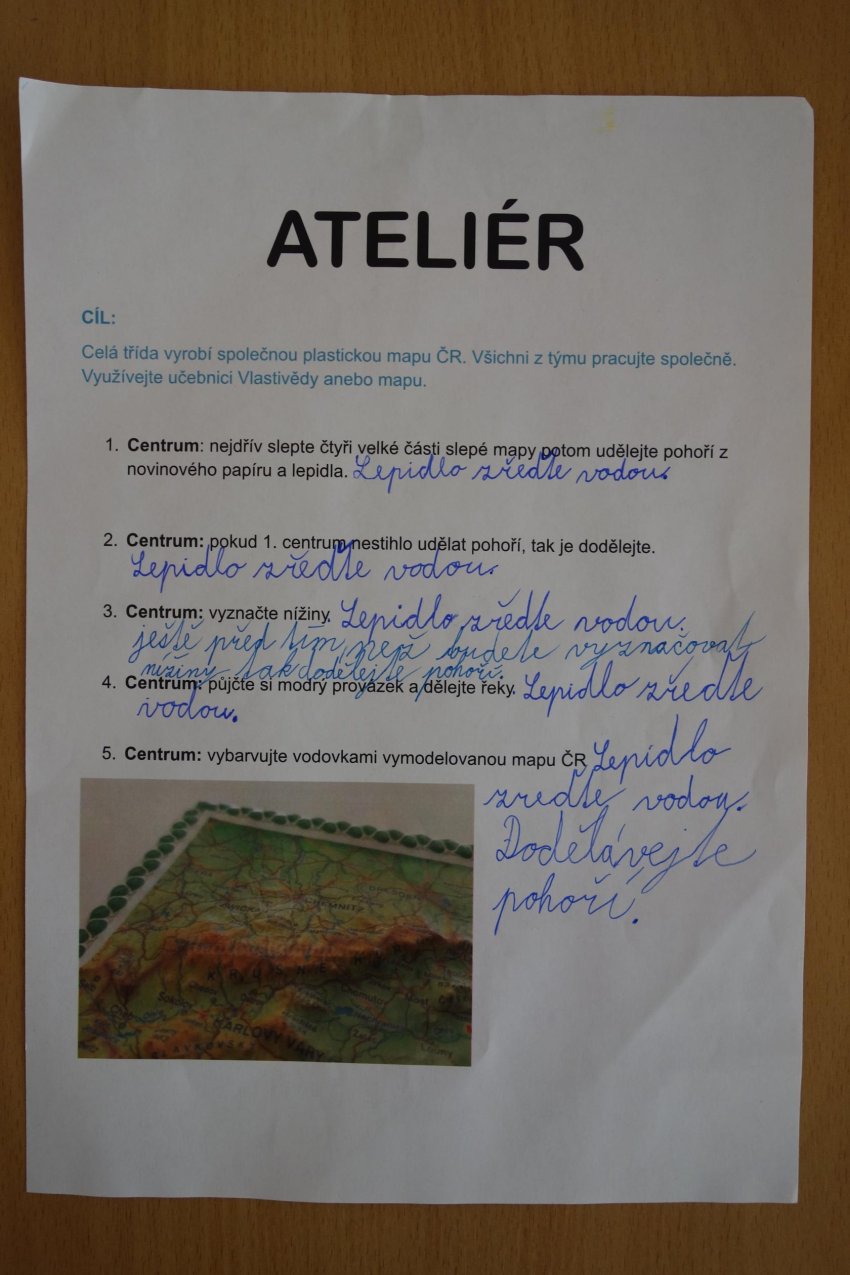 ATELIÉR
CÍL:
Celá třída vyrobí společnou plastickou mapu ČR. Všichni z týmu pracujte společně.
Využívejte učebnici Vlastivědy anebo mapu.
1. Centrum: nejdřív slepte čtyři velké části slepé mapy potom udělejte pohoří z
novinového papíru a lepidla. Lepidlo zřeďte vodou.
2. Centrum: pokud 1. centrum nestihlo udělat pohoří, tak je dodělejte.
Lepidlo zřeďte vodou.
3. Centrum: vyznačte nížiny. Lepidlo zřeďte vodou.
ještě před tím, než budete vyznačovat
nížiny tak dodělejte pohoří.
4. Centrum: půjčte si modrý provázek a dělejte řeky. Lepidlo zřeďte
vodou.
5. Centrum: vybarvujte vodovkami vymodelovanou mapu ČR Lepidlo
zřeďte vodou.
Dodělávejte
pohoří.
CHEMNITZ
KRUŠNÉ
Chomutov
Most
Sokolov
Cheb
KARLOVY VARY
SLAVKOVSKÝ
Louny